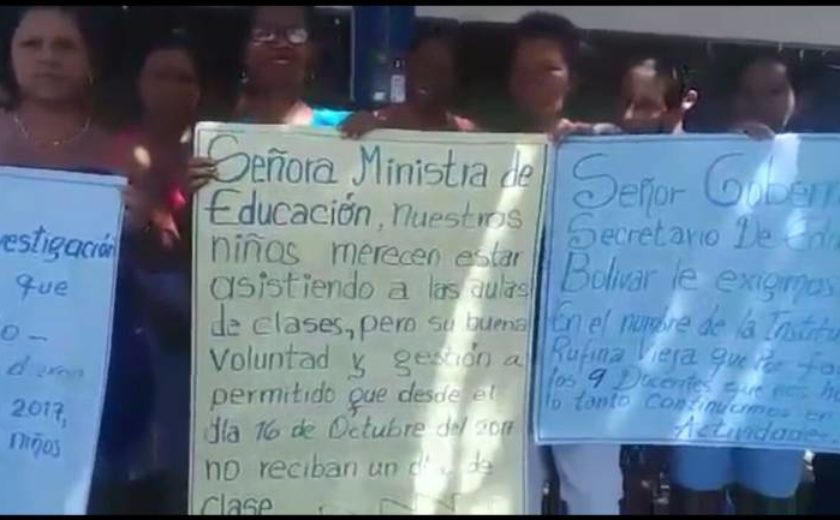 estigación
que
o-
dieron
2017,
niños
Señora Ministra de
Educación, nuestros
niños merecen estar
asistiendo a las aulas
de clases, pero su buena
Voluntad y gestión a
permitido que desde el
día 16 de Octubre del 2017
no reciban un día de
clase
Señor Gobern
Secretario De Edu
Bolivar le exigimos
En el nombre de la Institu
Rufina Viera que por fa
los 9 Docentes que nos
lo tanto continuamos en
Actividade